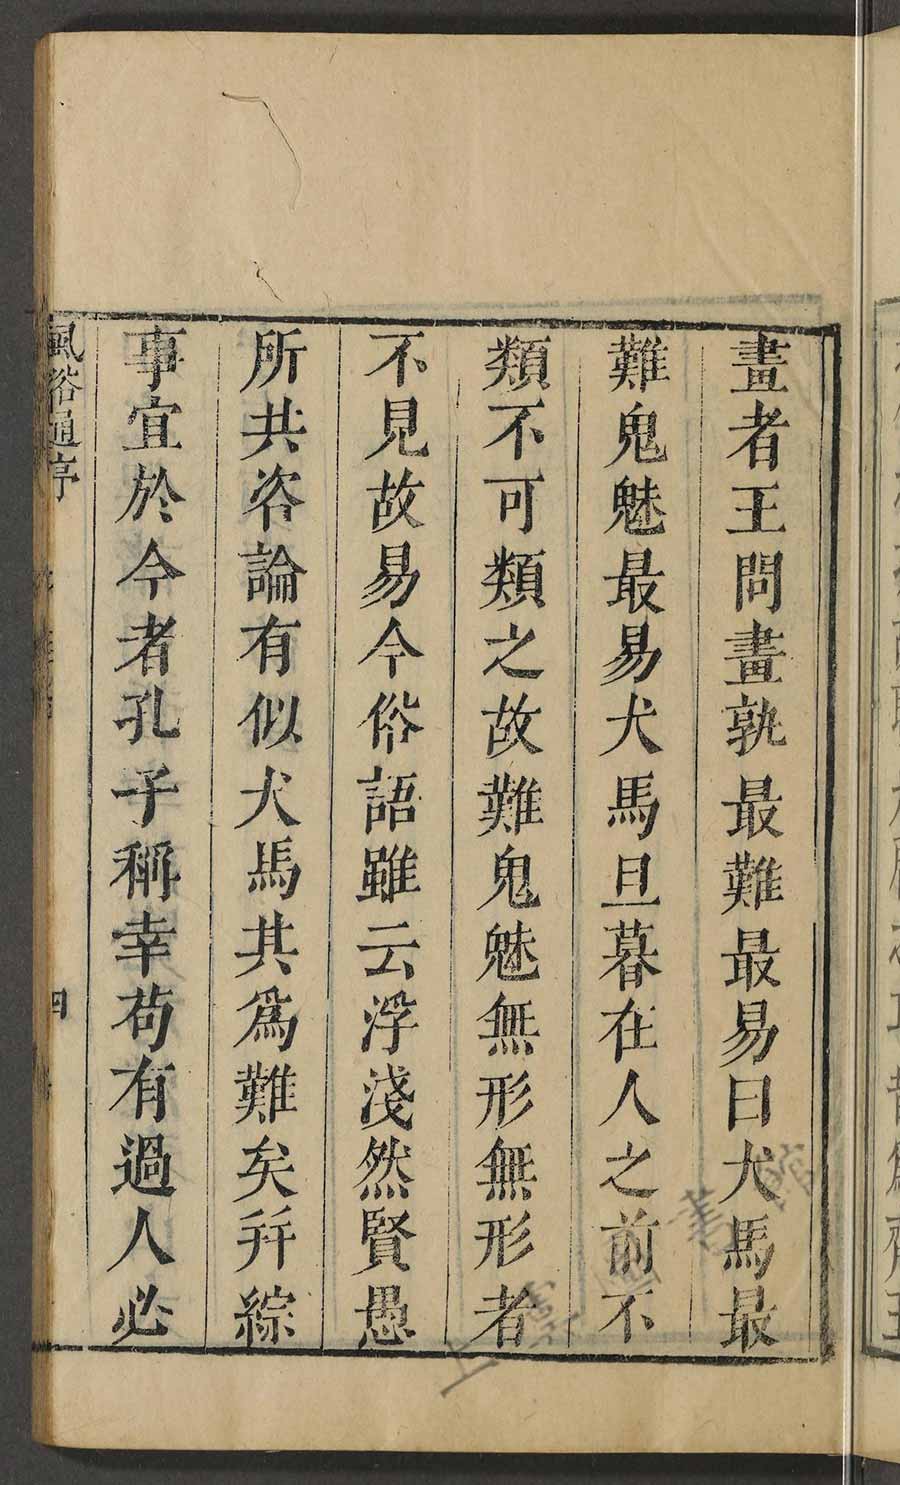 畫者王問畫孰最難最易曰犬馬最
難鬼魅最易犬馬旦暮在人之前不
類不可類之故難鬼魅無形無形者
不見故易今俗語雖云浮淺然賢愚
所共咨論有似犬馬其爲難矣幷綜
事宜於今者孔子稱幸苟有過人必
風俗通序
四